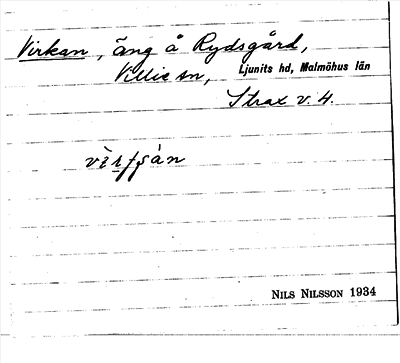 Virkan, äng å Rydsgård,
Villie sn, Ljunits hd, Malmöhus län
Strax v. 4.
NILS NILSSON 1934